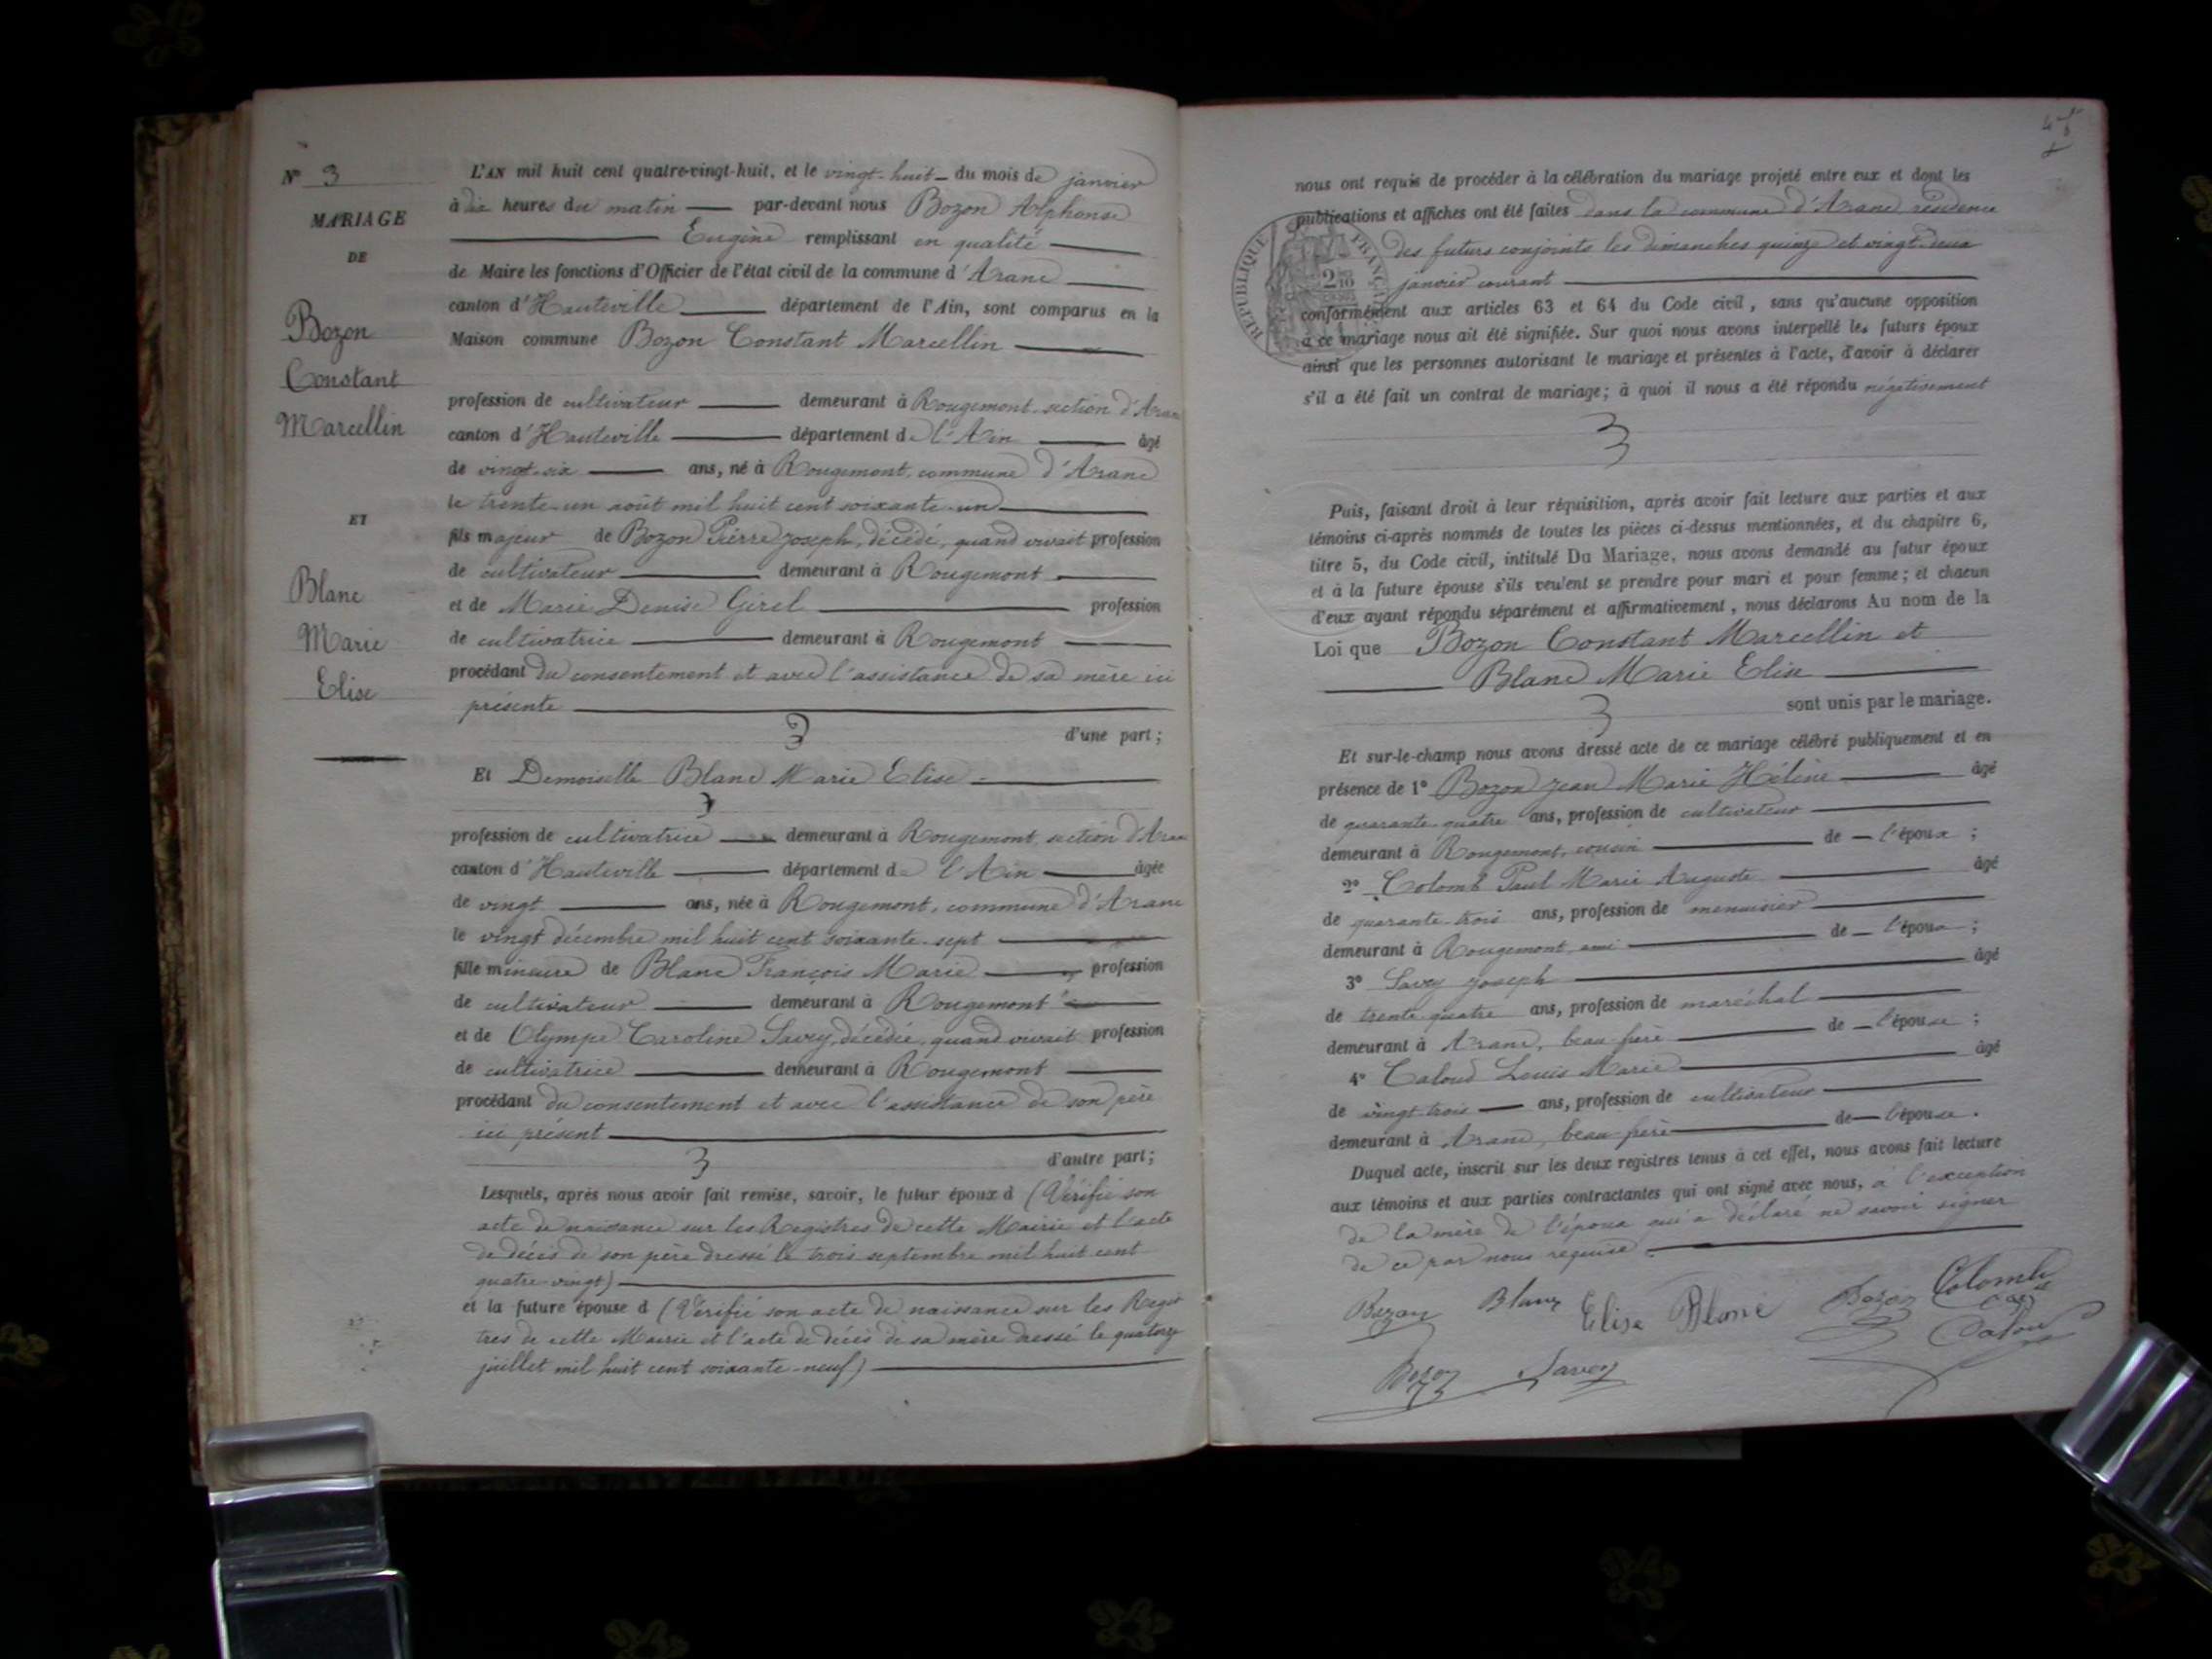 N° 3
MARIAGE
DE
Bozon
Constant
Marcellin
ET
Blanc
Marie
Elise
L'AN mil huit cent quatre-vingt-huit, et le vingt-huit du mois de janvier
à dix heures du matin par-devant nous Bozon Alphonse
Eugène remplissant en qualité
de Maire les fonctions d'Officier de l'état civil de la commune d'Aranc
canton d'Hauteville département de l'Ain, sont comparus en la
Maison commune Bozon Constant Marcellin
profession de cultivateur demeurant à Rougemont, section d'Aranc
canton d'Hauteville département de l'Ain âgé
de vingt-six ans, né à Rougemont, commune d'Aranc
le trente-un août mil huit cent soixante-un
fils majeur de Bozon Pierre Joseph, décédé, quand vivait profession
de cultivateur demeurant à Rougemont
et de Marie Denise Girel profession
de cultivatrice demeurant à Rougemont
procédant du consentement et avec l'assistance de sa mère ici
présente
d'une part;
Et Demoiselle Blanc Marie Elise
profession de cultivatrice demeurant à Rougemont, section d'Aranc
canton d'Hauteville département de l'Ain âgée
de vingt ans, née à Rougemont, commune d'Aranc
le vingt décembre mil huit cent soixante-sept
fille mineure de Blanc François Marie profession
de cultivateur demeurant à Rougemont
et de Olympe Caroline Savey, décédée, quand vivait profession
de cultivatrice demeurant à Rougemont
procédant du consentement et avec l'assistance de son père
ici présent
d'autre part;
Lesquels, après nous avoir fait remise, savoir, le futur époux d (Vérifié son
acte de naissance sur les Registres de cette Mairie et l'acte
de décès de son père dressé le trois septembre mil huit cent
quatre-vingt)
et la future épouse d (Vérifié son acte de naissance sur les Regis
tres de cette Mairie et l'acte de décès de sa mère dressé le quatorze
juillet mil huit cent soixante-neuf)
nous ont requis de procéder à la célébration du mariage projeté entre eux et dont les
publications et affiches ont été faites dans la commune d'Aranc, résidence
des futurs conjoints les dimanches quinze et vingt-deux
janvier courant
RÉPUBLIQUE FRANÇAISE
conformément aux articles 63 et 64 du Code civil, sans qu'aucune opposition
à ce mariage nous ait été signifiée. Sur quoi nous avons interpellé les futurs époux
ainsi que les personnes autorisant le mariage et présentes à l'acte, d'avoir à déclarer
s'il a été fait un contrat de mariage; à quoi il nous a été répondu négativement
Puis, faisant droit à leur réquisition, après avoir fait lecture aux parties et aux
témoins ci-après nommés de toutes les pièces ci-dessus mentionnées, et du chapitre 6,
titre 5, du Code civil, intitulé Du Mariage, nous avons demandé au futur époux
et à la future épouse s'ils veulent se prendre pour mari et pour femme; et chacun
d'eux ayant répondu séparément et affirmativement, nous déclarons Au nom de la
Loi que Bozon Constant Marcellin et
Blanc Marie Elise
sont unis par le mariage.
Et sur-le-champ nous avons dressé acte de ce mariage célébré publiquement et en
présence de 1° Bozon Jean Marie Hélène âgé
de quarante-quatre ans, profession de cultivateur
demeurant à Rougemont, cousin de l'époux;
2° Colomb Paul Marie Auguste âgé
de quarante-trois ans, profession de menuisier
demeurant à Rougemont, ami de l'époux;
3° Savey Joseph âgé
de trente-quatre ans, profession de maréchal
demeurant à Aranc, beau-frère de l'épouse;
4° Caloud Louis Marie âgé
de vingt-trois ans, profession de cultivateur
demeurant à Aranc, beau-frère de l'épouse.
Duquel acte, inscrit sur les deux registres tenus à cet effet, nous avons fait lecture
aux témoins et aux parties contractantes qui ont signé avec nous, à l'exception
de la mère de l'époux qui a déclaré ne savoir signer
de ce par nous requise.
Bozon Blanc Elise Blanc Bozon Colomb
Caloud
Bozon Savey